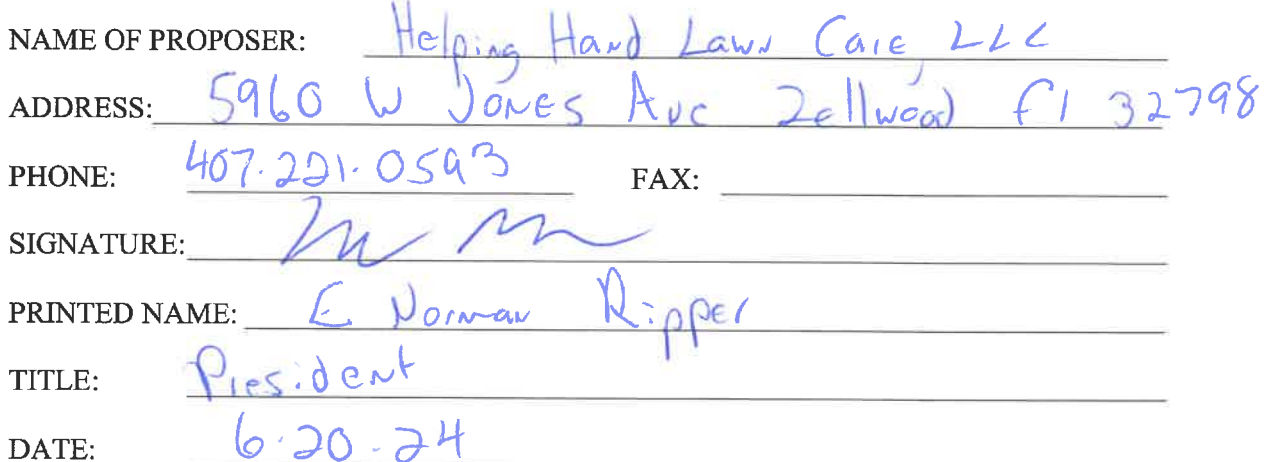 NAME OF PROPOSER: Helping Hand Lawn Care, LLC
ADDRESS: 5960 W Jones Ave Zellwood Fl 32798
PHONE: 407.221.0593 FAX:
SIGNATURE:
PRINTED NAME: E. Norman Ripper
TITLE: President
DATE: 6.20.24